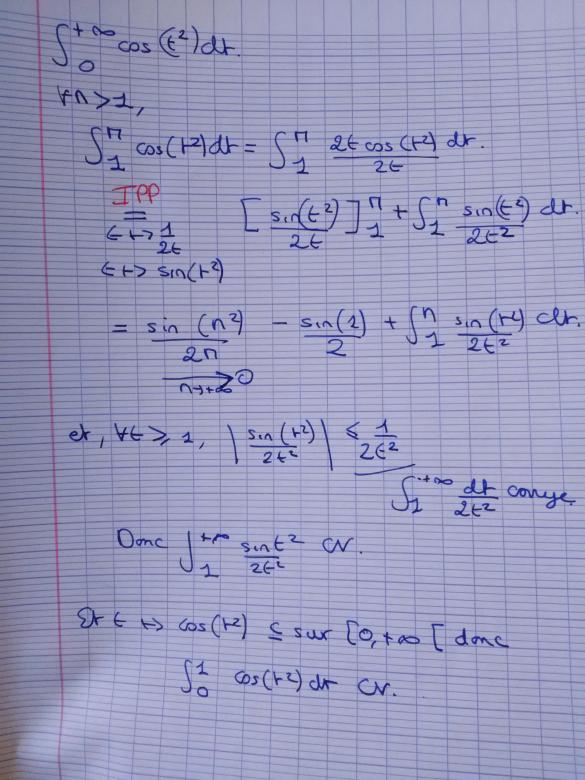 ∫₀^{+∞} cos(t²)dt.
∀n>1,
∫₁ⁿ cos(t²)dt = ∫₁ⁿ 2t cos(t²)/2t dt.
IPP
= [sin(t²)/2t]₁ⁿ + ∫₁ⁿ sin(t²)/2t² dt.
t ↦ 1/2t
t ↦ sin(t²)
= sin(n²)/2n - sin(1)/2 + ∫₁ⁿ sin(t²)/2t² dt.
n→+∞ 0
et, ∀t ≥ 1, |sin(t²)/2t²| ≤ 1/2t²
∫₁^{+∞} dt/2t² convge.
Donc ∫₁^{+∞} sin t²/2t² CV.
Et t ↦ cos(t²) sur [0,+∞[ donc
∫₀¹ cos(t²)dt CV.